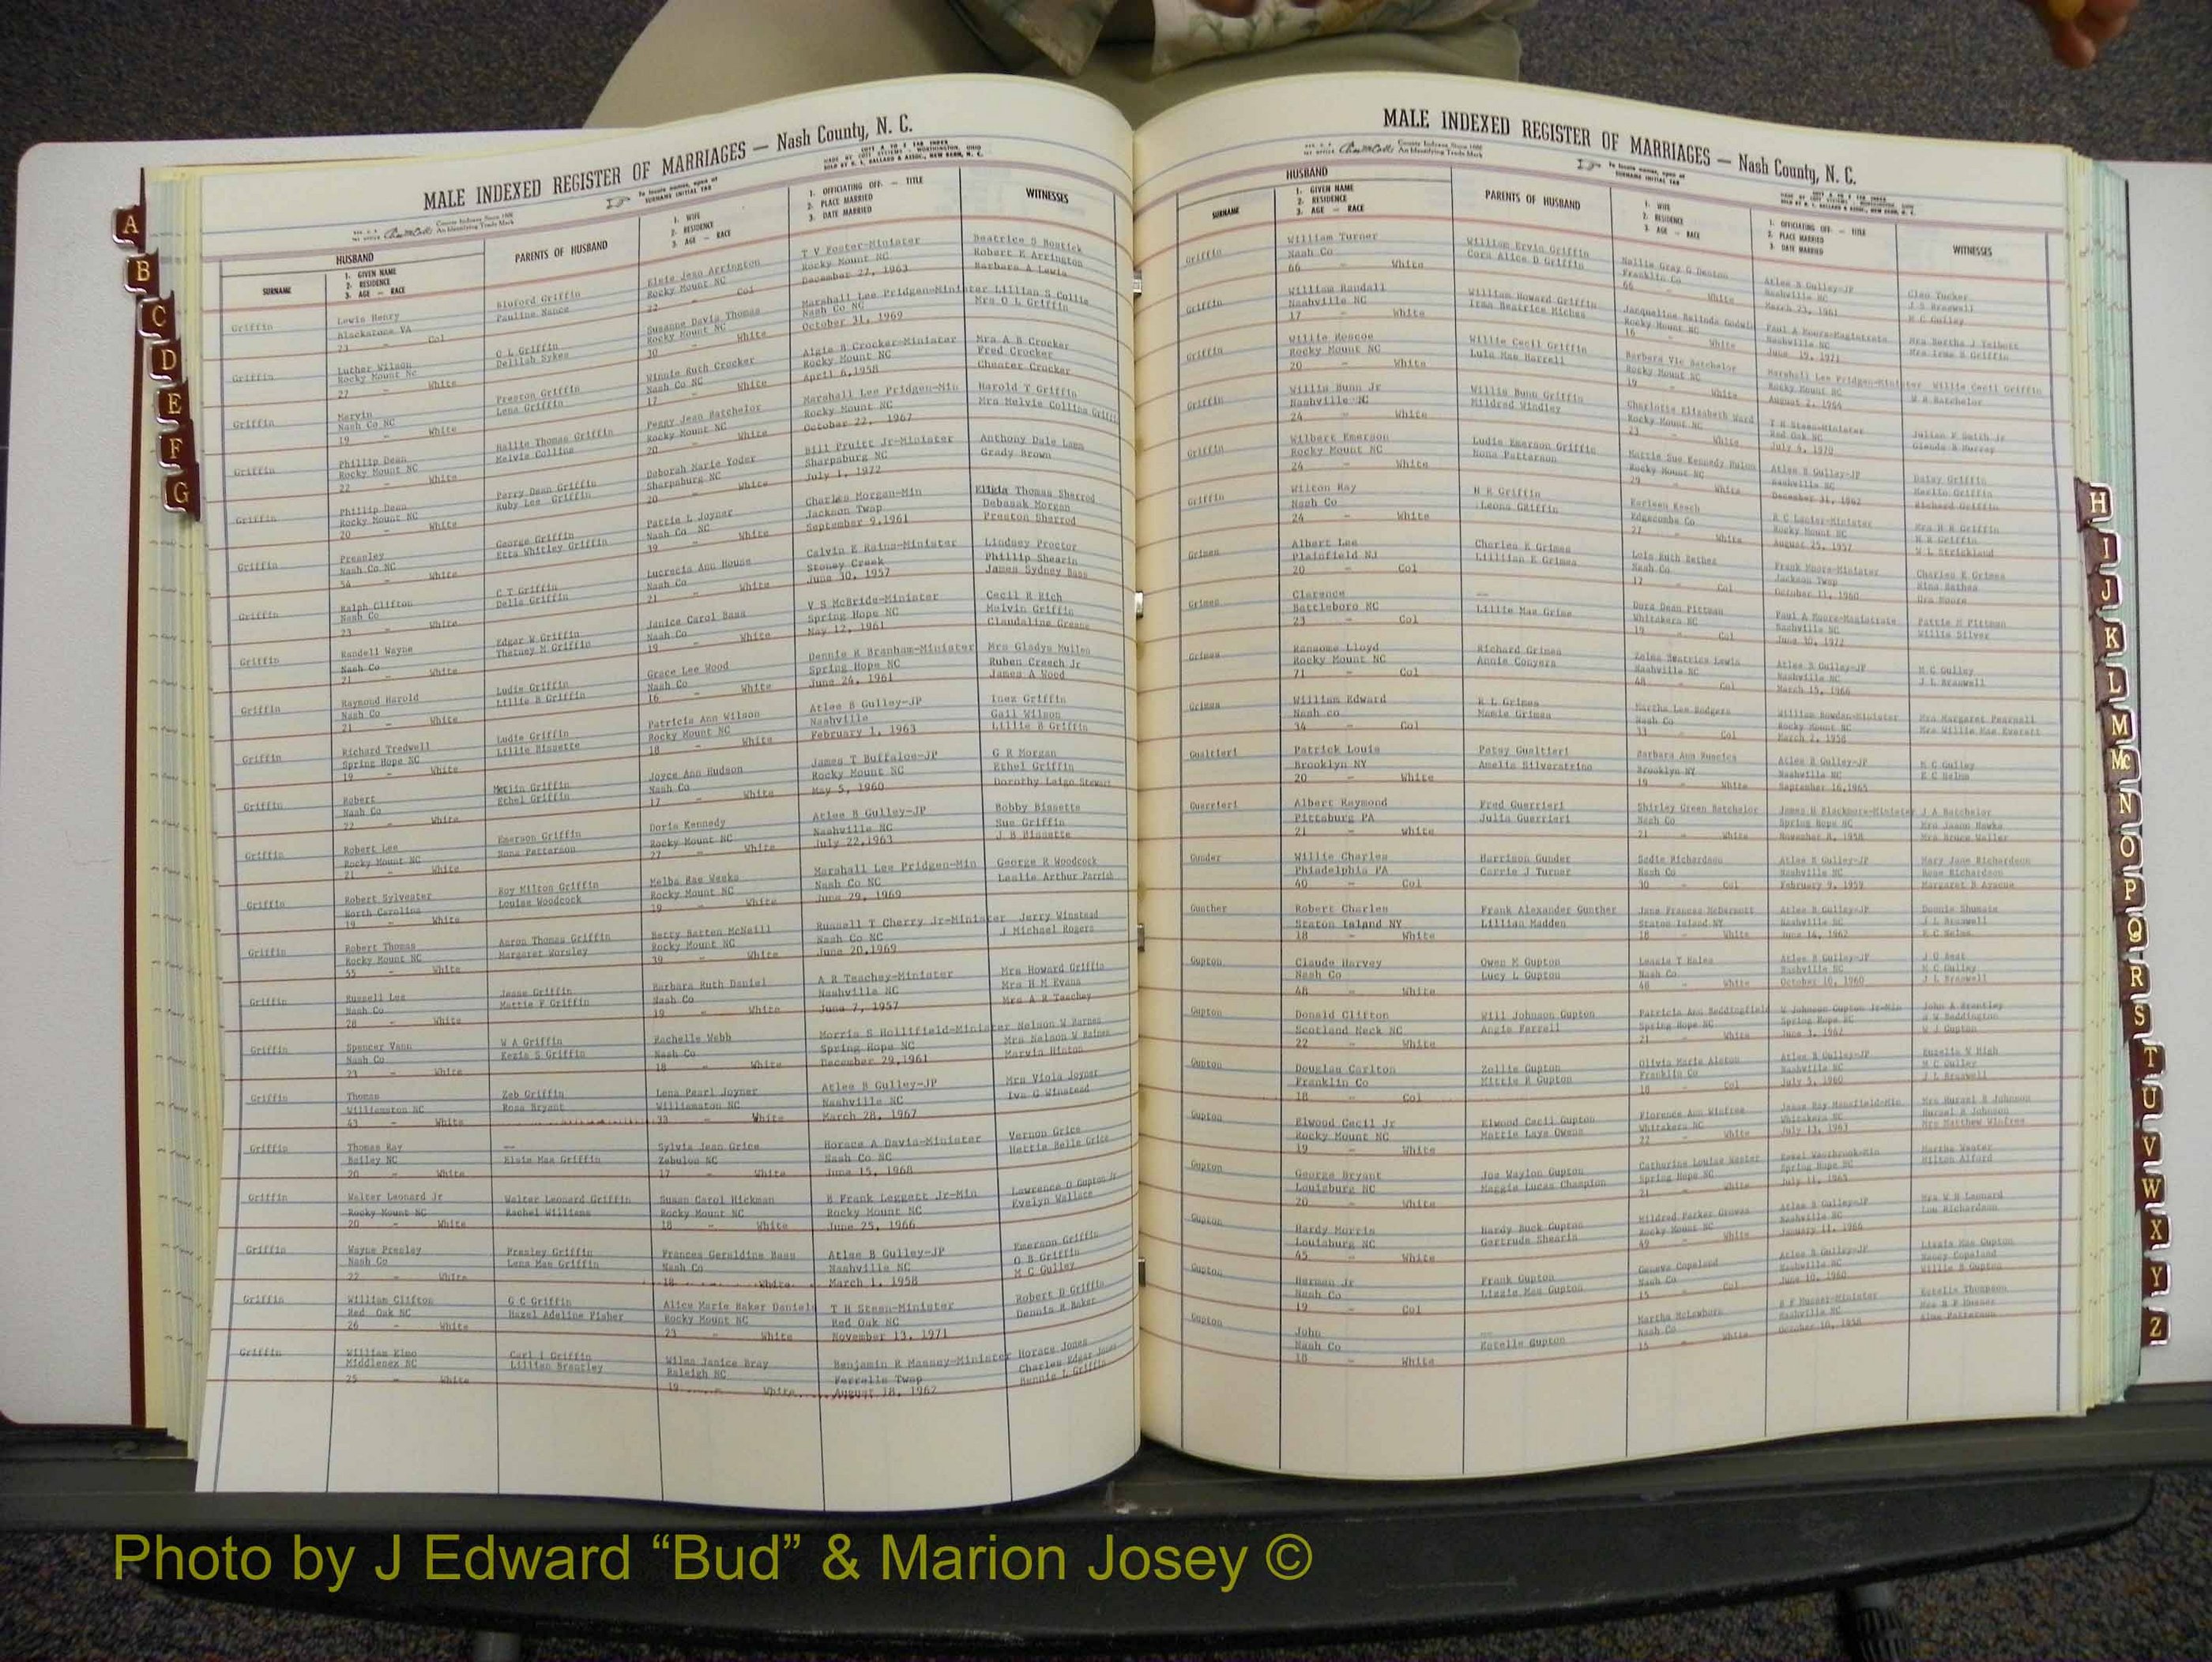 MALE INDEXED REGISTER OF MARRIAGES — Nash County, N. C.
To locate names, open at
SURNAME INITIAL TAB
HUSBAND
SURNAME
1. GIVEN NAME
2. RESIDENCE
3. AGE — RACE
PARENTS OF HUSBAND
1. WIFE
2. RESIDENCE
3. AGE — RACE
1. OFFICIATING OFF. — TITLE
2. PLACE MARRIED
3. DATE MARRIED
WITNESSES
Griffin Lewis Henry Bluford Griffin Elsie Jean Arrington T V Foster-Minister Beatrice S Bostick
Blackstone VA Pauline Nance Rocky Mount NC Rocky Mount NC Robert E Arrington
23 - Col 22 - Col December 27, 1963 Barbara A Lewis
Griffin Luther Wilson O L Griffin Susanne Davis Thomas Marshall Lee Pridgen-Minister Lillian S Collie
Rocky Mount NC Delilah Sykes Rocky Mount NC Nash Co NC Mrs O L Griffin
27 - White 30 - White October 31, 1969
Griffin Marvin Preston Griffin Winnie Ruth Crocker Algie B Crocker-Minister Mrs A B Crocker
Nash Co NC Lena Griffin Nash Co NC Rocky Mount NC Fred Crocker
19 - White 17 - White April 6,1958 Chester Crocker
Griffin Phillip Dean Hallie Thomas Griffin Peggy Jean Batchelor Marshall Lee Pridgen-Min Harold T Griffin
Rocky Mount NC Melvie Collins Rocky Mount NC Rocky Mount NC Mrs Melvie Collins
22 - White 20 - White October 22, 1967
Griffin Phillip Dean Perry Dean Griffin Deborah Marie Yoder Bill Pruitt Jr-Minister Anthony Dale Lamm
Rocky Mount NC Ruby Lee Griffin Sharpsburg NC Sharpsburg NC Grady Brown
20 - White 20 - White July 1, 1972
Griffin Preasley George Griffin Pattie L Joyner Charles Morgan-Min Thomas Sherrod
Nash Co NC Etta Whitley Griffin Nash Co NC Jackson Twsp Morgan
54 - White 39 - White September 9,1961 Preston Sherrod
Griffin Ralph Clifton C T Griffin Lucrecia Ann House Calvin E Rains-Minister Lindsey Proctor
Nash Co Della Griffin Nash Co Stoney Creek Phillip Shearin
23 - White 21 - White June 30, 1957 James Sydney Bass
Griffin Randell Wayne Edgar W Griffin Janice Carol Bass V S McBride-Minister Cecil R Rich
Nash Co M Griffin Nash Co Spring Hope NC Melvin Griffin
21 - White 19 - White May 12, 1961 Claudaline Greene
Griffin Raymond Harold Ludie Griffin Grace Lee Wood Dennis R Branham-Minister Mrs Gladys Mullen
Nash Co Lillie B Griffin Nash Co Spring Hope NC Ruben Creech Jr
21 - White 16 - White June 24, 1961 James A Wood
Griffin Richard Tredwell Ludie Griffin Patricia Ann Wilson Atlee B Gulley-JP Inez Griffin
Spring Hope NC Lillie Bissette Rocky Mount NC Nashville Gail Wilson
19 - White 18 - White February 1, 1963 Lillie B Griffin
Griffin Robert Griffin Joyce Ann Hudson James T Buffaloe-JP G R Morgan
Nash Co Ethel Griffin Nash Co Rocky Mount NC Ethel Griffin
22 - White 17 - White May 5, 1960 Dorothy Stewart
Griffin Robert Lee Emerson Griffin Doris Kennedy Atlee B Gulley-JP Bobby Bissette
Rocky Mount NC Nona Patterson Rocky Mount NC Nashville NC Sue Griffin
21 - White 27 - White July 22,1963 J B Bissette
Griffin Robert Sylvester Roy Milton Griffin Melba Rae Weeks Marshall Lee Pridgen-Min George R Woodcock
North Carolina Louise Woodcock Rocky Mount NC Nash Co NC Leslie Arthur Parrish
19 - White 19 - White June 29, 1969
Griffin Robert Thomas Aaron Thomas Griffin Betty Batten McNeill Russell T Cherry Jr-Minister Jerry Winstead
Rocky Mount NC Margaret Worsley Rocky Mount NC Nash Co NC J Michael Rogers
55 - White 39 - White June 20,1969
Griffin Russell Lee Jesse Griffin Barbara Ruth Daniel A R Teachey-Minister Mrs Howard Griffin
Nash Co Mattie F Griffin Nash Co Nashville NC Mrs H M Evans
28 - White 19 - White June 7, 1957 Mrs A R Teachey
Griffin Spencer Vann W A Griffin Rachelle Webb Morris S Hollifield-Minister Nelson W Barnes
Nash Co Kezia S Griffin Nash Co Spring Hope NC Mrs Nelson W Barnes
23 - White 18 - White December 29,1961 Marvin Hinton
Griffin Thomas Zeb Griffin Lena Pearl Joyner Atlee B Gulley-JP Mrs Viola Joyner
Williamston NC Rosa Bryant Williamston NC Nashville NC Iva G Winstead
43 - White 33 - White March 28, 1967
Griffin Thomas Ray — Sylvia Jean Grice Horace A Davis-Minister Vernon Grice
Bailey NC Elsie Mae Griffin Zebulon NC Nash Co NC Hattie Belle Grice
20 - White 17 - White June 15, 1968
Griffin Walter Leonard Jr Walter Leonard Griffin Susan Carol Hickman B Frank Leggett Jr-Min Lawrence O Gupton Jr
Rocky Mount NC Rachel Williams Rocky Mount NC Rocky Mount NC Evelyn Wallace
20 - White 18 - White June 25, 1966
Griffin Wayne Presley Presley Griffin Frances Geraldine Bass Atlee B Gulley-JP Emerson Griffin
Nash Co Lena Mae Griffin Nash Co Nashville NC O B Griffin
22 - White 18 - White March 1, 1958 M C Gulley
Griffin William Clifton G C Griffin Alice Marie Baker Daniels T H Steen-Minister Robert D Griffin
Red Oak NC Hazel Adeline Fisher Rocky Mount NC Red Oak NC Dennis R Baker
26 - White 23 - White November 13, 1971
Griffin William Kino Carl L Griffin Wilma Janice Bray Benjamin R Massey-Minister Horace Jones
Middlesex NC Lillian Brantley Raleigh NC Ferrells Twsp Charles Edgar Jones
25 - White 19 - White August 18, 1962 Bennie L Griffin
MALE INDEXED REGISTER OF MARRIAGES — Nash County, N. C.
To locate names, open at
SURNAME INITIAL TAB
HUSBAND
SURNAME
1. GIVEN NAME
2. RESIDENCE
3. AGE — RACE
PARENTS OF HUSBAND
1. WIFE
2. RESIDENCE
3. AGE — RACE
1. OFFICIATING OFF. — TITLE
2. PLACE MARRIED
3. DATE MARRIED
WITNESSES
Griffin William Turner William Ervin Griffin Nellie Gray G Denton Atlee B Gulley-JP Cleo Tucker
Nash Co Cora Alice D Griffin Franklin Co Nashville NC J S Braswell
66 - White 66 - White March 25, 1961 M C Gulley
Griffin William Randall William Howard Griffin Jacqueline Belinda Paul A Moore-Magistrate Mrs Bertha J Talbott
Nashville NC Irma Beatrice Rocky Mount NC Nashville NC Mrs Irma B Griffin
17 - White 16 - White June 19, 1971
Griffin Willie Roscoe Willie Cecil Griffin Barbara Vic Batchelor Marshall Lee Pridgen-Minister Willie Cecil Griffin
Rocky Mount NC Lula Mae Harrell Rocky Mount NC Rocky Mount NC W R Batchelor
20 - White 19 - White August 2, 1964
Griffin Willis Bunn Jr Willie Bunn Griffin Charlotte Elizabeth Ward T H Steen-Minister Julian K Smith Jr
Nashville NC Mildred Windley Rocky Mount NC Red Oak NC Glenda B Murray
24 - White 23 - White July 4, 1970
Griffin Wilbert Emerson Ludie Emerson Griffin Mattie Sue Kennedy Atlee B Gulley-JP Daisy Griffin
Rocky Mount NC Nona Patterson Rocky Mount NC Nashville NC Griffin
24 - White 29 - White December 31, 1962 Richard Griffin
Griffin Wilton Ray H R Griffin Earleen Keech R C Lanier-Minister Mrs H R Griffin
Nash Co Leona Griffin Edgecombe Co Rocky Mount NC H R Griffin
24 - White 27 - White August 25, 1957 W L Strickland
Grimes Albert Lee Charles E Grimes Lois Ruth Bethea Frank Moore-Minister Charles E Grimes
Plainfield NJ Lilllian E Grimes Nash Co Jackson Twsp Bethea
20 - Col 17 - Col October 11, 1960 Ora Moore
Grimes Clarence — Dora Dean Pittman Paul A Moore-Magistrate Pattie H Pittman
Battleboro NC Lillie Mae Grime Whitakers NC Nashville NC Willis Silver
23 - Col 19 - Col June 30, 1972
Grimes Ransome Lloyd Richard Grimes Zelma Beatrice Lewis Atlee B Gulley-JP M C Gulley
Rocky Mount NC Annie Conyers Nashville NC Nashville NC J L Braswell
71 - Col 48 - Col March 15, 1966
Grimes William Edward R L Grimes Martha Lee Rodgers William Bowden-Minister Mrs Margaret Pearsall
Nash co Mamie Grimes Nash Co Rocky Mount NC Mrs Willie Mae Everett
34 - Col 33 - Col March 2, 1958
Gualtieri Patrick Louis Patsy Gualtieri Barbara Ann Atlee B Gulley-JP M C Gulley
Brooklyn NY Amelia Silverstrino Brooklyn NY Nashville NC E C Helms
20 - White 19 - White September 16,1965
Guerrieri Albert Raymond Fred Guerrieri Shirley Green Batchelor James H Blackmore-Minister J A Batchelor
Pittsburg PA Julia Guerrieri Nash Co Spring Hope NC Mrs Jason Hawks
21 - white 21 - White November 8, 1958 Mrs Bruce Waller
Gunder Willie Charles Harrison Gunder Sadie Richardson Atlee B Gulley-JP Mary Jane Richardson
Philadelphia PA Carrie J Turner Nash Co Nashville NC Rose Richardson
40 - Col 30 - Col February 9, 1959 Margaret B Ayscue
Gunther Robert Charles Frank Alexander Gunther Jane Frances McDermott Atlee B Gulley-JP Donnie Shumate
Staton Island NY Lillian Madden Staton Island NY Nashville NC J L Braswell
18 - White 18 - White June 14, 1962 E C Helms
Gupton Claude Harvey Owen M Gupton Lessie T Hales Atlee B Gulley-JP J O Beat
Nash Co Lucy L Gupton Nash Co Nashville NC M C Gulley
48 - White 46 - White October 10, 1960 J L Braswell
Gupton Donald Clifton Will Johnson Gupton Patricia Ann Beddingfield W Johnson Gupton Jr-Min John A Brantley
Scotland Neck NC Angie Farrell Spring Hope NC Spring Hope NC W W Beddington
22 - White 21 - White June 3, 1962 W J Gupton
Gupton Douglas Carlton Zollie Gupton Olivia Marie Alston Atlee B Gulley-JP Euzelia W High
Franklin Co Mittie R Gupton Franklin Co Nashville NC M C Gulley
18 - Col 18 - Col July 5, 1960 J L Braswell
Gupton Elwood Cecil Jr Elwood Cecil Gupton Florence Ann Winfree Jesse Ray Mansfield-Min Mrs Hurael R Johnson
Rocky Mount NC Mattie Laye Owens Whitakers NC Whitakers NC Hurael R Johnson
19 - White 22 - White July 13, 1963 Mrs Matthew Winfree
Gupton George Bryant Joe Waylon Gupton Catharine Louise Wester Westbrook-Min Martha Wester
Louisburg NC Maggie Lucas Champion Spring Hope NC Spring Hope NC Milton Alford
20 - White 21 - White July 11, 1965
Gupton Hardy Morris Hardy Buck Gupton Mildred Parker Groves Atlee B Gulley-JP Mrs W B Leonard
Louisburg NC Gertrude Shearin Rocky Mount NC Nashville NC Lou Richardson
45 - White 49 - White January 11, 1966
Gupton Herman Jr Frank Gupton Geneva Copeland Atlee B Gulley-JP Lizzie Mae Gupton
Nash Co Lizzie Mae Gupton Nash Co Nashville NC Nancy Copeland
19 - Col 15 - Col June 10, 1960 Willie B Gupton
Gupton John — Martha McLawhorn B F Musser-Minister Estelle Thompson
Nash Co Estelle Gupton Nash Co Nashville NC Mrs B F Musser
18 - White 15 - White October 10, 1958 Patterson
A
B
C
D
E
F
G
H
I
J
K
L
M
Mc
N
O
P
Q
R
S
T
U
V
W
X
Y
Z
Photo by J Edward “Bud” & Marion Josey ©